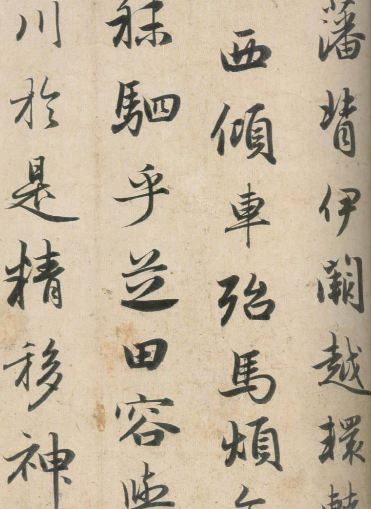 藩背伊闕越轘
西傾車殆馬煩
秣駟乎芝田容
川於是精移神